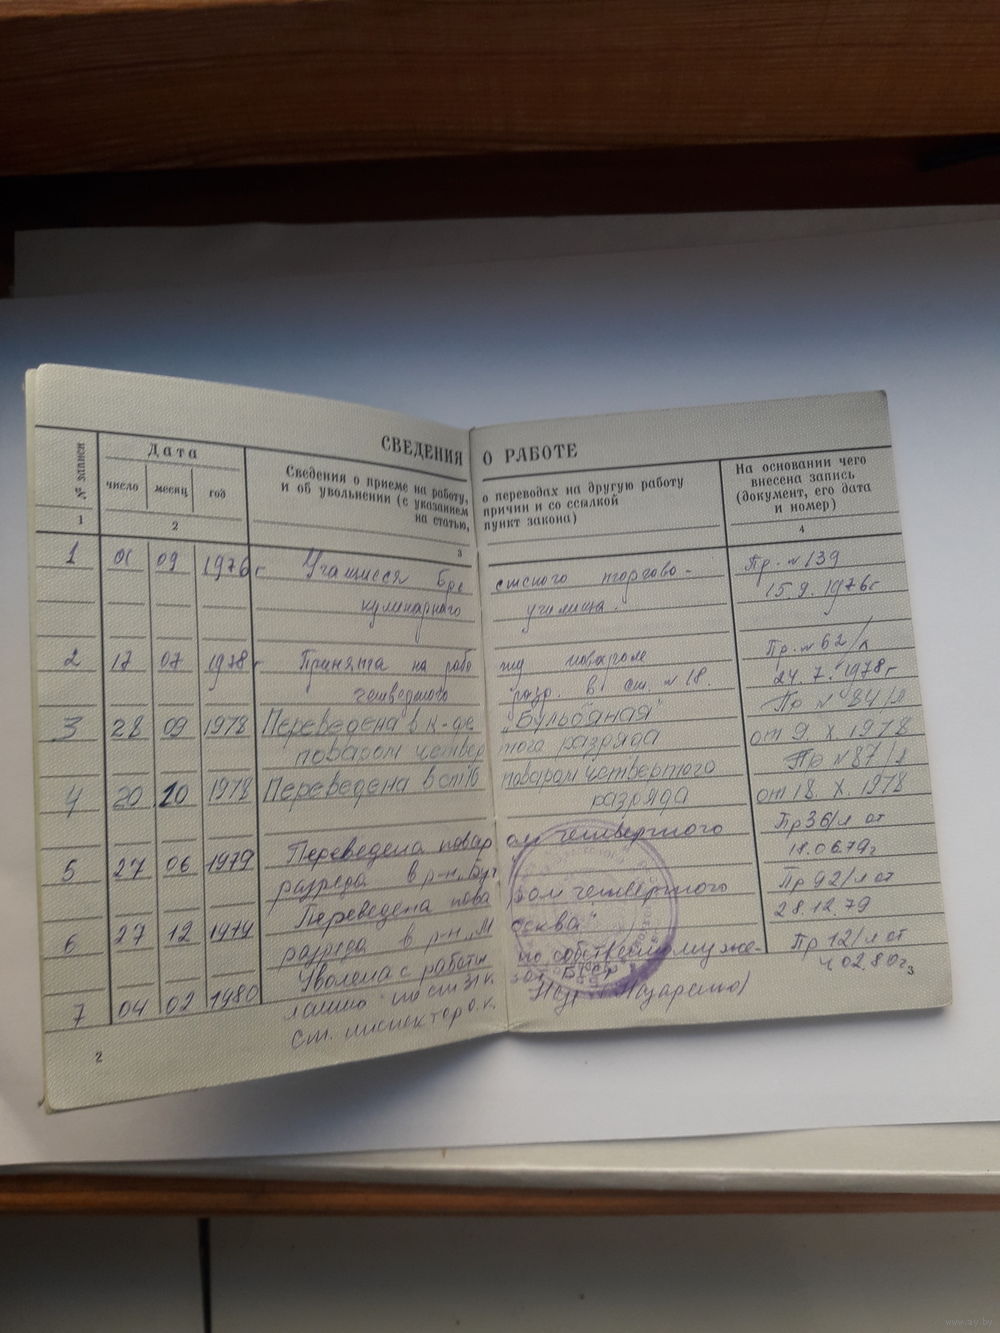 СВЕДЕНИЯ О РАБОТЕ
№ записи
Дата
число месяц год
Сведения о приеме на работу, о переводах на другую работу
и об увольнении (с указанием причин и со ссылкой
на статью, пункт закона)
На основании чего
внесена запись
(документ, его дата
и номер)
1 2 3 4
1 01 09 1976г Учащийся Брестского торгово- Пр. №139
кулинарного училища. 15.9.1976г
2 17 07 1978г Принята на работу поваром Пр. №62/к
четвертого разр. в ст. №18. 24.7.1978г
3 28 09 1978 Переведена в к-це "Бульбяная" Пр №84/л
поваром четвертого разряда от 9 X 1978
4 20 10 1978 Переведена в поваром четвертого Пр №87/л
разряда от 18 X. 1978
5 27 06 1979 Переведена поваром четвертого Пр36/л от
разряда в р-н 18.06.79г
6 27 12 1979 Переведена поваром четвертого Пр 92/л от
разряда в р-н „Москва" 28.12.79
7 04 02 1980 Уволена с работы по собственному же- Пр 12/л от
ланию по ст 31 к. зот БССР 4 02.80г
Ст. инспектор о.к. Назаренко)
2
3
www.ay.by